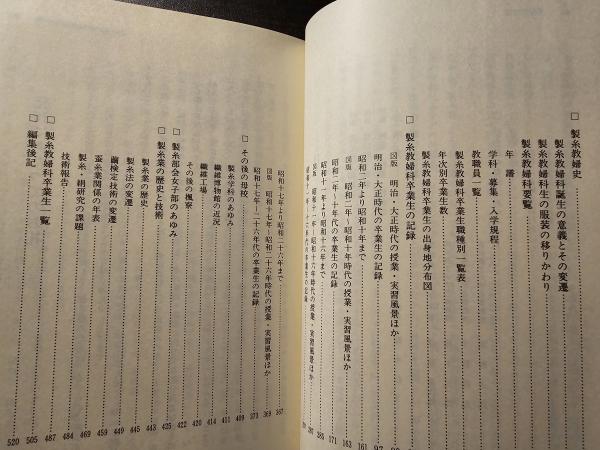 □ 製糸教婦史
製糸教婦科誕生の意義とその変遷
製糸教婦科生の服装の移りかわり
製糸教婦科要覧
年譜
学科・募集・入学規程
教職員一覧
製糸教婦科卒業生職種別一覧表
年次別卒業生数
製糸教婦科卒業生の出身地分布図
□ 製糸教婦科卒業生の記録
図版 明治・大正時代の授業・実習風景ほか
明治・大正時代の卒業生の記録 97
昭和二年より昭和十年まで 161
図版 昭和二年〜昭和十年時代の授業・実習風景ほか 163
昭和二年〜十年代の卒業生の記録 171
昭和十一年より昭和十六年まで 285
図版 昭和十一年〜昭和十六年時代の授業・実習風景ほか 287
昭和十一年〜十六年代の卒業生の記録
昭和十七年より昭和二十六年まで 367
図版 昭和十七年〜昭和二十六年時代の授業・実習風景ほか 369
昭和十七年〜二十六年代の卒業生の記録 373
□ その後の母校 409
製糸学科のあゆみ 411
繊維博物館の近況 414
繊維工場 420
その後の楓寮 422
□ 製糸部会女子部のあゆみ 425
□ 製糸業の歴史と技術 443
製糸業の歴史 445
製糸法の変遷 449
繭検定と技術の変遷 459
蚕糸業関係の年表 469
製糸・絹研究の課題 484
技術報告 487
□ 製糸教婦科卒業生一覧 505
□ 編集後記 520